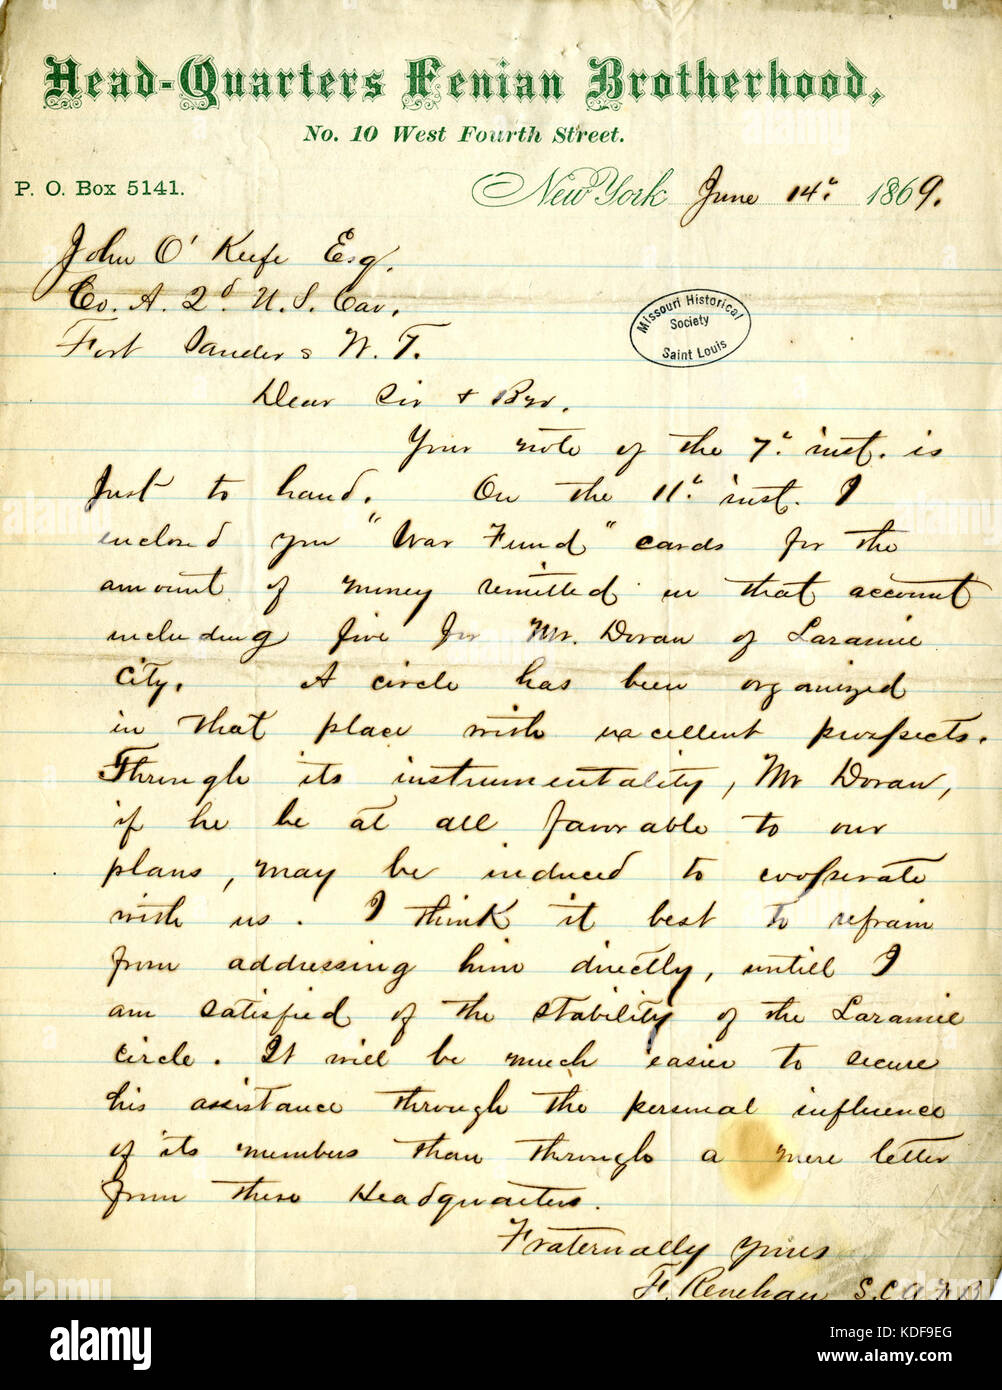 Head-Quarters Fenian Brotherhood,
No. 10 West Fourth Street.
P. O. Box 5141.
New York June 14th 1869.
John O'Keefe Esq.
Co. A. 2d U. S. Cav.
Fort Sanders W. T.
Missouri Historical
Society
Saint Louis
Dear Sir & Bro.
Your note of the 7th inst. is
Just to hand. On the 11th inst. I
enclosed you "War Fund" cards for the
amount of money remitted on that account
including five for Mr. Doran of Laramie
City. A circle has been organized
in that place with excellent prospects.
Through its instrumentality, Mr Doran,
if he be at all favorable to our
plans, may be induced to cooperate
with us. I think it best to refrain
from addressing him directly, untill I
am satisfied of the stability of the Laramie
circle. It will be much easier to secure
his assistance through the personal influence
of its members than through a mere letter
from these Headquarters.
Fraternally yours
F. Renehan S.C.A F.B
alamy
Image ID: KDF9EG
www.alamy.com